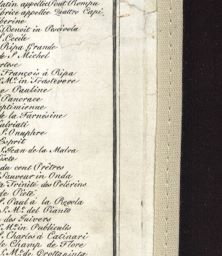 latin appellée Pont Rompu
abrice appellée Quattro Capi,
berine
S. Benoit in Piscivola
S. Cecile
Ripa Grande
de S. Michel
S. François à Ripa
S. M.e in Trastevere
e Pauline
S. Pancrace
Septimienne
de la Farnesine
Salviati
S. Onuphre
Esprit
S. Jean de la Malva
Sixte
du cent Prêtres
S. Sauveur in Onda
la Trinité des Pelerins
de Pieté
S. Paul à la Regola
S. M.e del Pianto
des Juives
S. M.e in Publicolis
S. Charles à Catinari
de Champ de Flore
S. M.e de Grottapinta